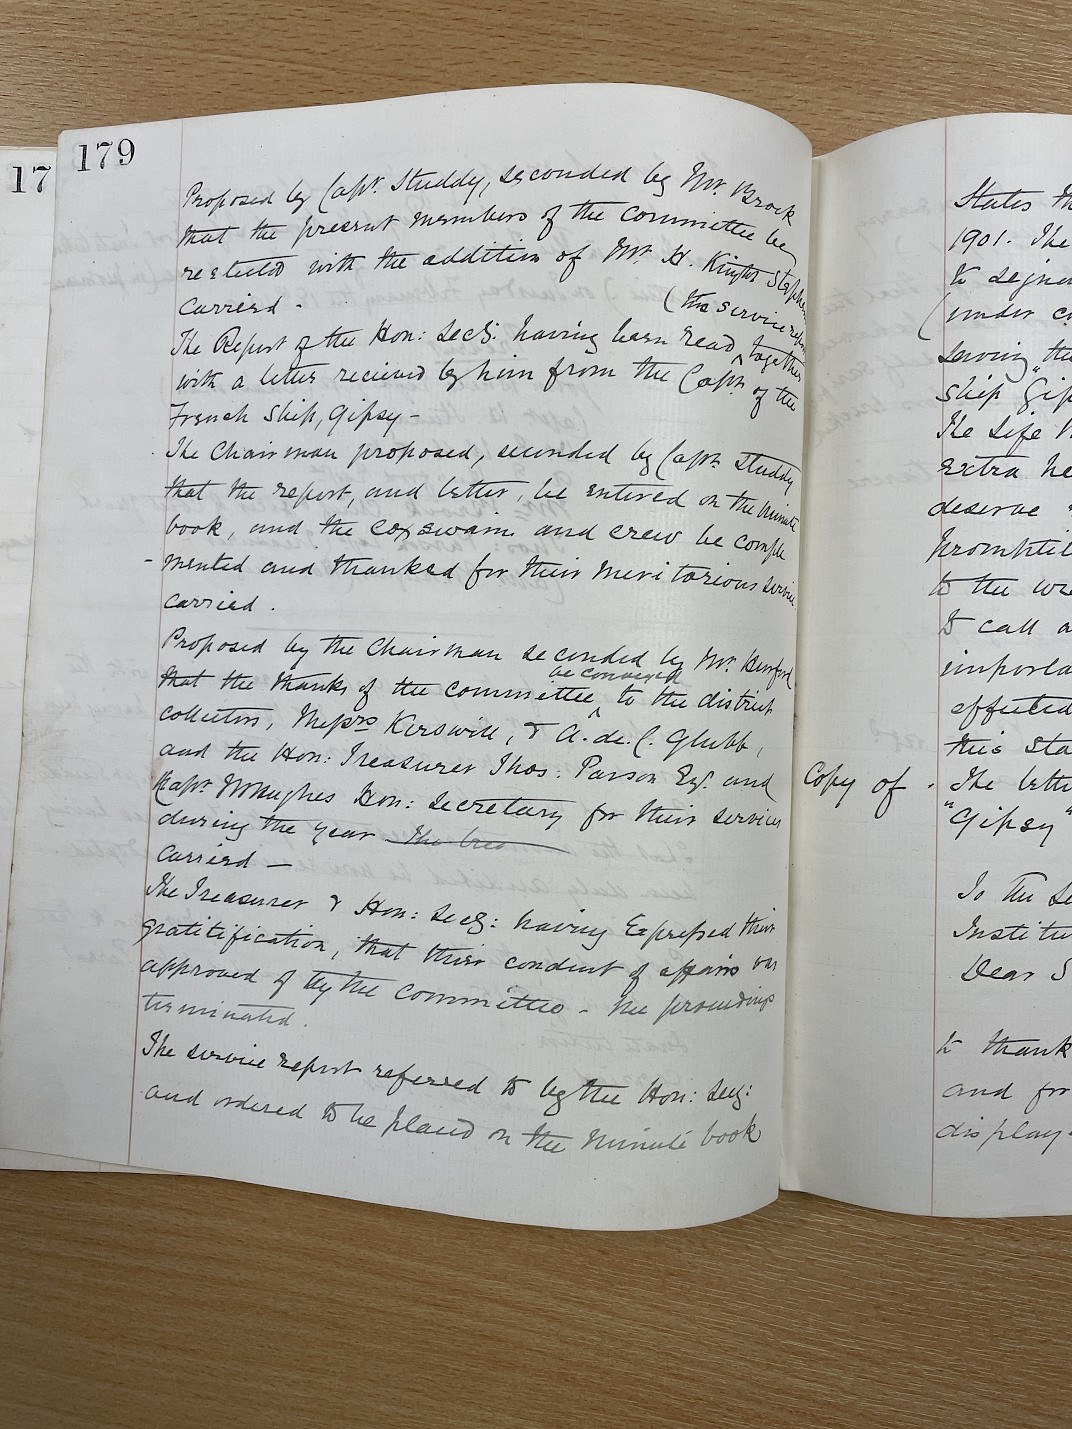 17
179
Proposed by Capt. Studdy, seconded by Mr. Brock
that the present members of the Committee be
reelected with the addition of Mr. H. Knight
carried -
(the service
The Report of the Hon: Secy: having been read together
with a letter recieved by him from the Captn of the
French Ship, Gipsy -
The Chairman proposed, seconded by Captn Studdy
that the report, and letter, be entered on the minute
book, and the coxswain and crew be comple
- mented and thanked for their meritorious service
carried.
Proposed by the Chairman seconded by Mr.
be conveyed
that the thanks of the Committee to the district
collectors, Messrs Kerswill, & A. de. C. Glubb,
and the Hon: Treasurer Thos: Parson Esq. and
Capt. Hughes Hon: Secretary for their services
during the year
carried -
The Treasurer & Hon: Secy: having Expressed their
gratitification, that their conduct of affairs was
approved of by the Committee - the proceedings
terminated.
The service report referred to by the Hon: Secy:
and ordered to be placed on the minute book
States th
1901. The
to signa
(under c
saving the
ship "Gip
The Life
extra he
deserve
promptit
to the
to call a
importa
effected
this Sta
Copy of - The lette
"Gipsy"
To the Se
Institu
Dear S
to thank
and for
display